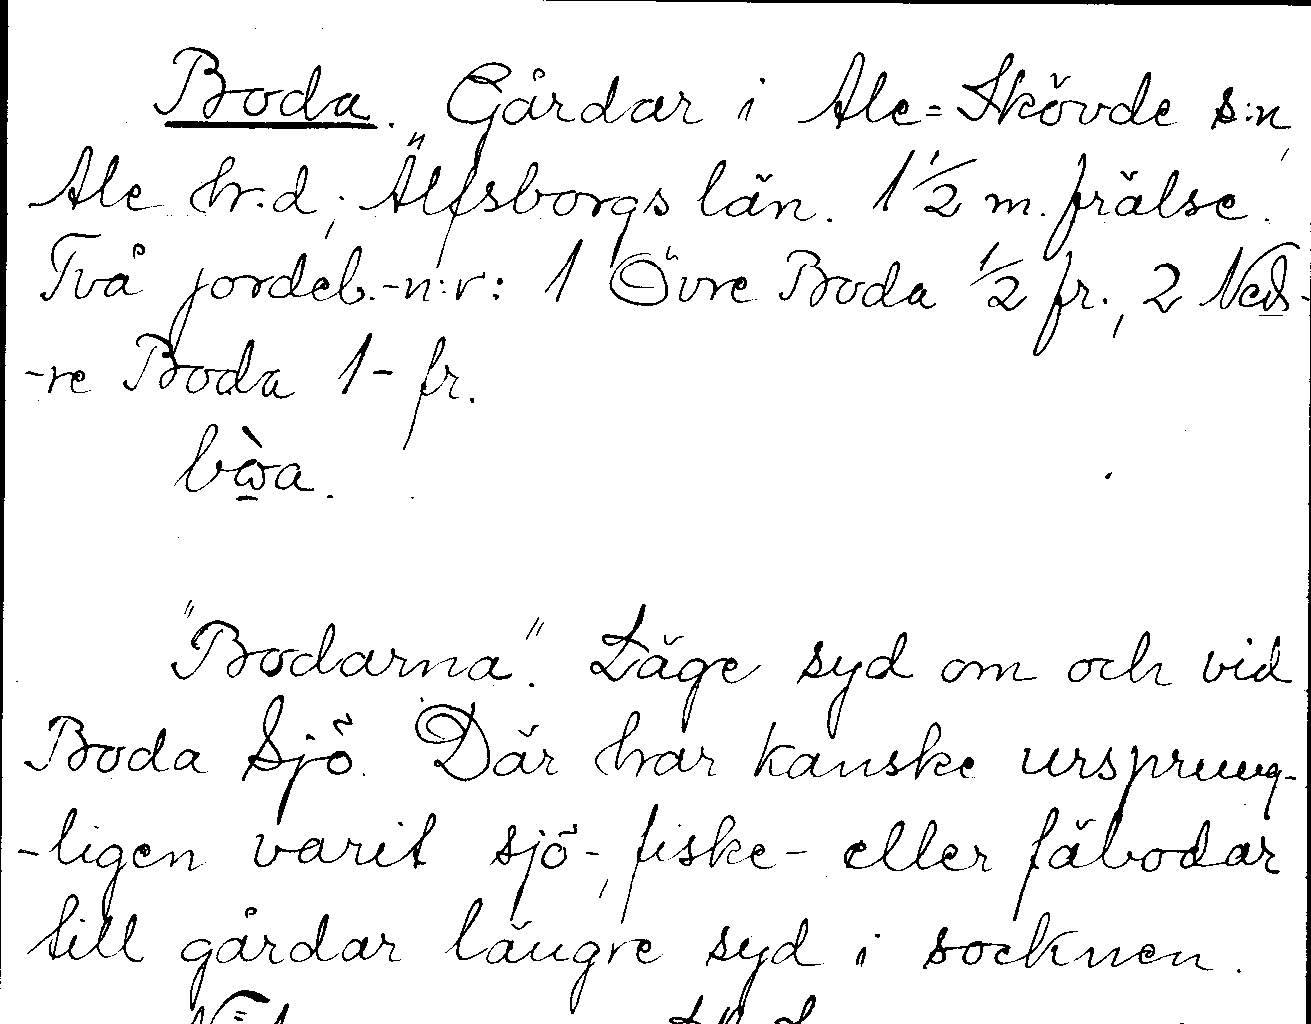 Boda. Gårdar i Ale=Skövde s:n,
Ale hr.d; Älfsborgs län. 1 1/2 m. frälse.
Två jordeb.-n:r: 1 Övre Boda 1/2 fr., 2 Ned-
-re Boda 1- fr.
bὼ̠a.
"Bodarna". Läge syd om och vid
Boda Sjö. Där har kanske ursprung-
-ligen varit sjö-, fiske- eller fäbodar
till gårdar längre syd i socknen.